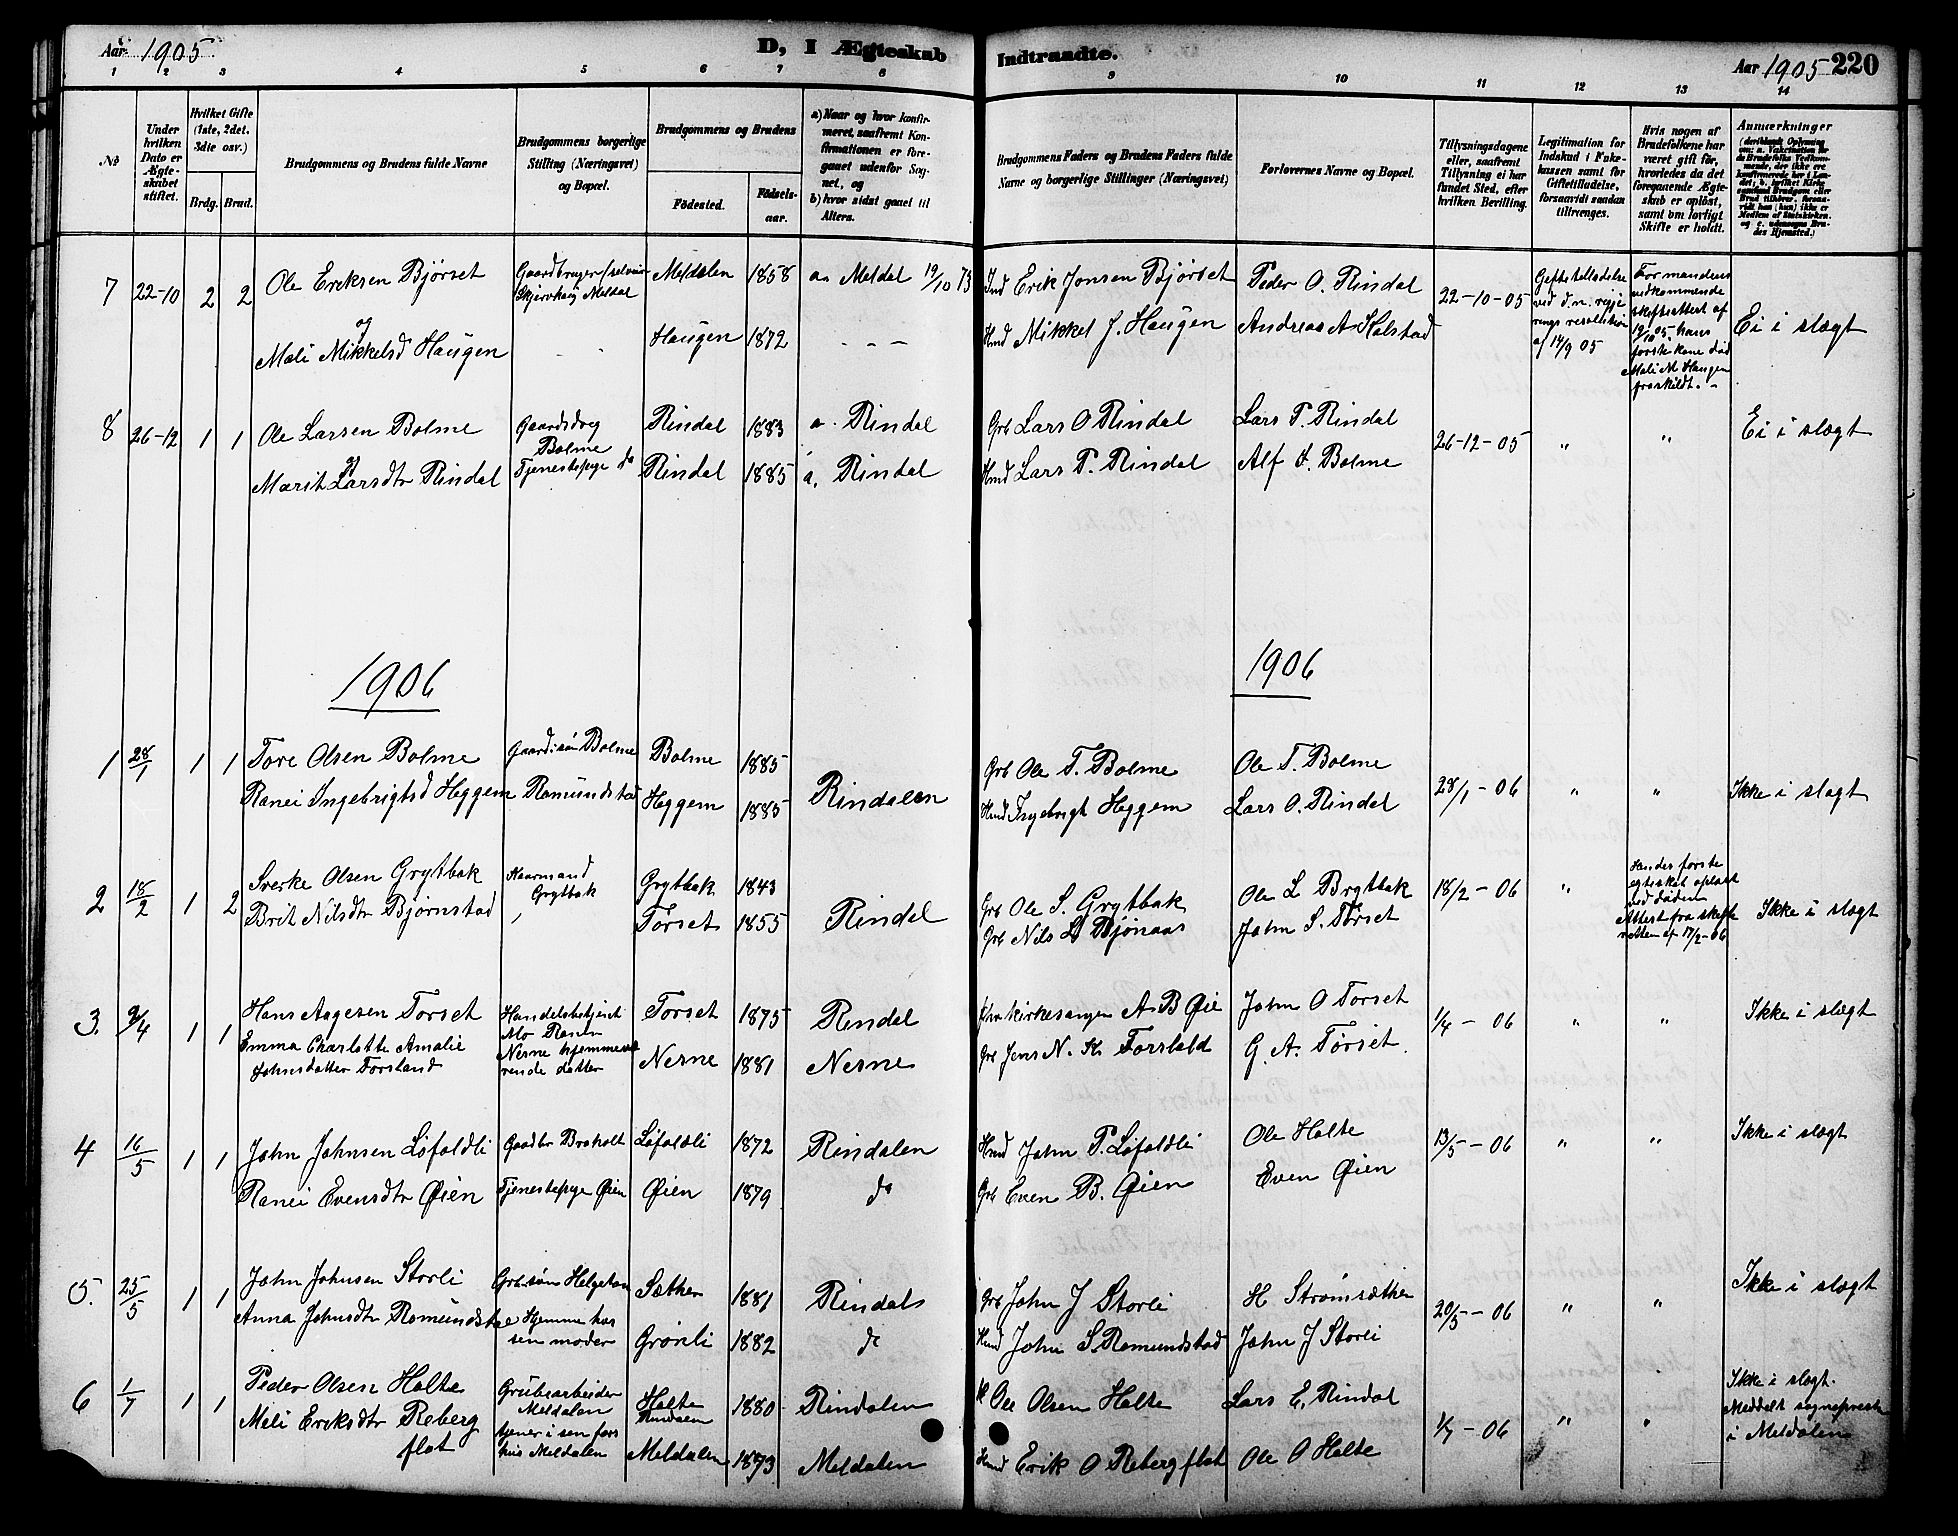 Aar 1905
D, I Ægteskab
Indtraadte.
Aar 1905 220
1 2 3 4 5 6 7 8 9 10 11 12 13 14
No
Under hvilken Dato er Ægteskabet stiftet.
Hvilket Gifte (1ste, 2det, 3die osv.)
Brdg. Brud.
Brudgommens og Brudens fulde Navne
Brudgommens borgerlige Stilling (Næringsvei) og Bopæl.
Brudgommens og Brudens
Födested.
Födsels-aar.
a) Naar og hvor konfirmeret, saafremt Konfirmationen er foregaaet udenfor Sognet, og
b) hvor sidst gaaet til Alters.
Brudgommens Faders og Brudens Faders fulde Navne og borgerlige Stillinger (Næringsvei)
Forlovernes Navne og Bopæl.
Tillysningsdagene eller, saafremt Tillysning ei har fundet Sted, efter hvilken Bevilling.
Legitimation for Indskud i Enkekassen samt for Giftetilladelse, forsaavidt saadan tiltrænges.
Hvis nogen af Brudefolkene har været gift før, hvorledes da det foregaaende Ægteskab er opløst, samt om lovligt Skifte er holdt.
Anmærkninger
7 22-10 2 2 Ole Eriksen Bjørset Meldalen 1858 a. Meldal 19/10 73 Erik Jonsen Bjørset Peder O. Rindal 22-10-05
og
Mali Mikkelsd Haugen Haugen 1872 - - - Hmd Mikkel J. Haugen Andreas A Halstad Ei i slægt
af 14/9 05
8 26-12 1 1 Ole Larsen Bolme Bolme Rindal 1883 a. Rindal Grb Lars O Rindal Lars P. Rindal 26-12-05 " " Ei i slægt
og
Marit Larsdtr Rindal Tjenestepige do Rindal 1885 a. Rindal Hmd Lars P. Rindal Alf O. Bolme
1906 1906
1 28/1 1 1 Tore Olsen Bolme Gaardssøn Bolme Bolme 1885 Rindalen Grb Ole T. Bolme Ole T. Bolme 28/1 - 06 " " Ikke i slægt
Ranei Ingebrigtsd Heggem Romundstad Heggem 1885 Hmd Ingebrigt Heggem Lars O. Rindal
2 18/2 1 2 Sivert Olsen Grytbak Kaarmand Grytbak Grytbak 1843 Rindal Grb Ole S. Grytbak Ole L Grytbak 18/2 - 06 " Ikke i slægt
Brit Nilsdtr Bjørnstad Tørset 1855 Grb Nils L Bjønaas John S. Tørset
Attest fra skifteretten af 17/2-06
3. 2/4 1 1 Hans Aagesen Torset Handelsbetjent Mo Ranen Torset 1875 Rindal Kirkesanger A B Øie John O Torset 1/4 - 06 " " Ikke i slægt
Emma Charlotte Amalie Johnsdatter Forsland Nesne hjemmeværende datter Nesne 1881 Nesne Grb Jens N. Kr Forsland G. A. Tørset.
4 16/5 1 1 John Johnsen Løfaldli Gaardbr Broholt Løfaldli 1872 Rindalen Hmd John P. Løfaldli Ole Holte 13/5 - 06 " " Ikke i slægt
Ranei Evensdtr Øien Tjenestepige Øien Øien 1879 do Grb Even B. Øien Even Øien
5. 25/5 1 1 John Johnsen Storli Grb.søn Helgetun Sæther 1881 Rindals Grb John J Storli H Strømsæther 20/5 - 06 " " Ikke i slægt
Anna Johnsdtr Romundstad Hjemme hos sin moder Grønli 1882 do Hmd John S. Romundstad John J Storli
6 1/7 1 1 Peder Olsen Holte Grubearbeider Meldalen Holte Rindalen 1880 Rindalen Ole Olsen Holte Lars E. Rindal 1/7 - 06 " " Ikke i slægt. Meddelt sogneprest i Meldalen
Meli Eriksdtr Reberg flot tjener i sin fars hus Meldalen Meldalen 1873 Meldalen Hmd Erik O Reberg flot Ole O Holte